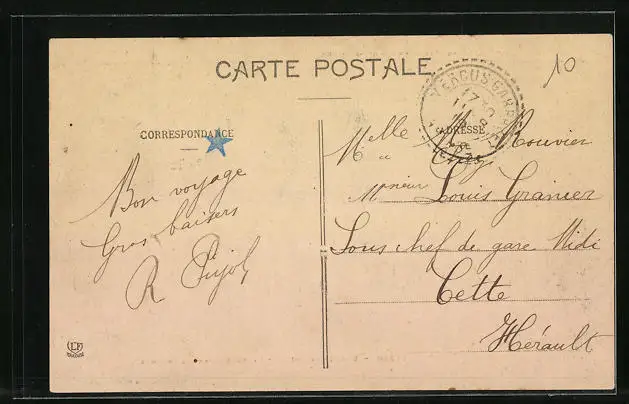 CARTE POSTALE
10
CORRESPONDANCE
ADRESSE
Bon voyage
Gros baisers
R Pujol
Melle M. Rouvier
Chez
Monsieur Louis Granier
Sous chef de gare Midi
Cette
Hérault
LF
TOULOUSE